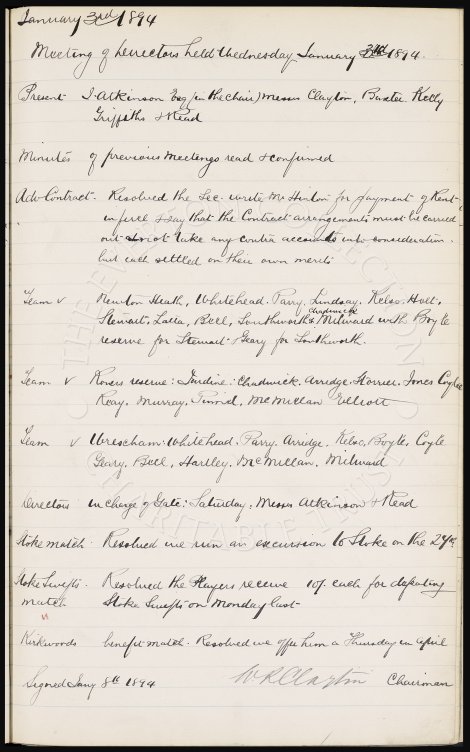 January 3rd 1894
Meeting of Directors held Wednesday January 3rd 1894.
Present J. Atkinson Esq (in the chair) Messrs Clayton, Baxter Kelly
Griffiths & Read
Minutes of previous Meetings read & confirmed
Adv Contract. Resolved the Sec. write Mr Hinton for payment of Rent
in full & say that the Contract arrangements must be carried
out & not take any contra accounts into consideration.
but each settled on their own merits
Team v Newton Heath, Whitehead. Parry. Lindsay. Kelso. Holt.
Stewart, Latta, Bell, Southworth & Chadwick Milward with Boyle
reserve for Stewart Geary for Southworth.
Team v Rovers reserve: Jardine: Chadwick. Arridge. Storrier. Jones Coyle
Reay. Murray, McMillan Elliott
Team v Wrexham: Whitehead. Parry. Arridge, Kelso, Boyle, Coyle
Geary, Bell, Hartley, McMillan, Milward
Directors in charge of Gate: Saturday: Messrs Atkinson & Read
Stoke match. Resolved we run an excursion to Stoke on the 27th.
Stoke Swifts. Resolved the Players receive 10/- each for defeating
match Stoke Swifts on Monday last
Kirkwoods benefit match. Resolved we offer him a Thursday in April
Signed Jany 8th 1894 W R Clayton Chairman
THE EVERTON COLLECTION
CHARITABLE TRUST